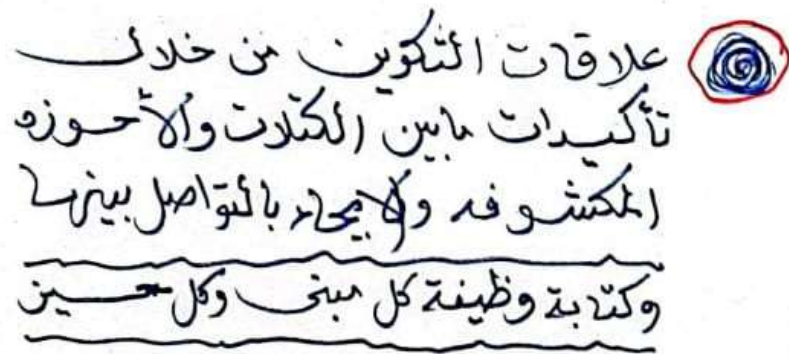 علاقات التكوين من خلال
تأكيدات مابين الكتلات والأحوزه
المكشوفه والايحاء بالتواصل بينها
وكتابة وظيفة كل مبنى وكل حيز